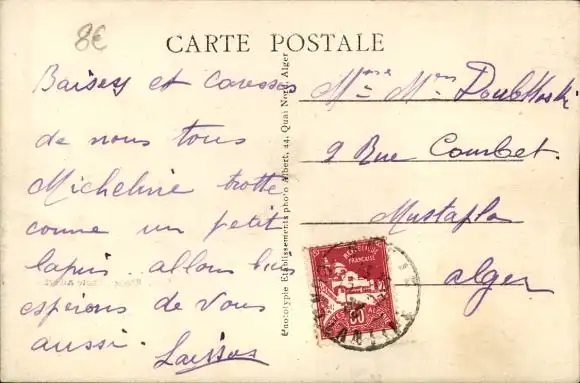 8€
CARTE POSTALE
Baisers et Caresses
de nous tous
Micheline trotte
comme un petit
lapin. allons bien
espérons de vous
aussi.
Phototypie Etablissements photo Albert, 44, Quai Nord, Alger
Mme Mr
9 Rue Combet.
Mustapha
Alger
REPUBLIQUE
FRANÇAISE
50